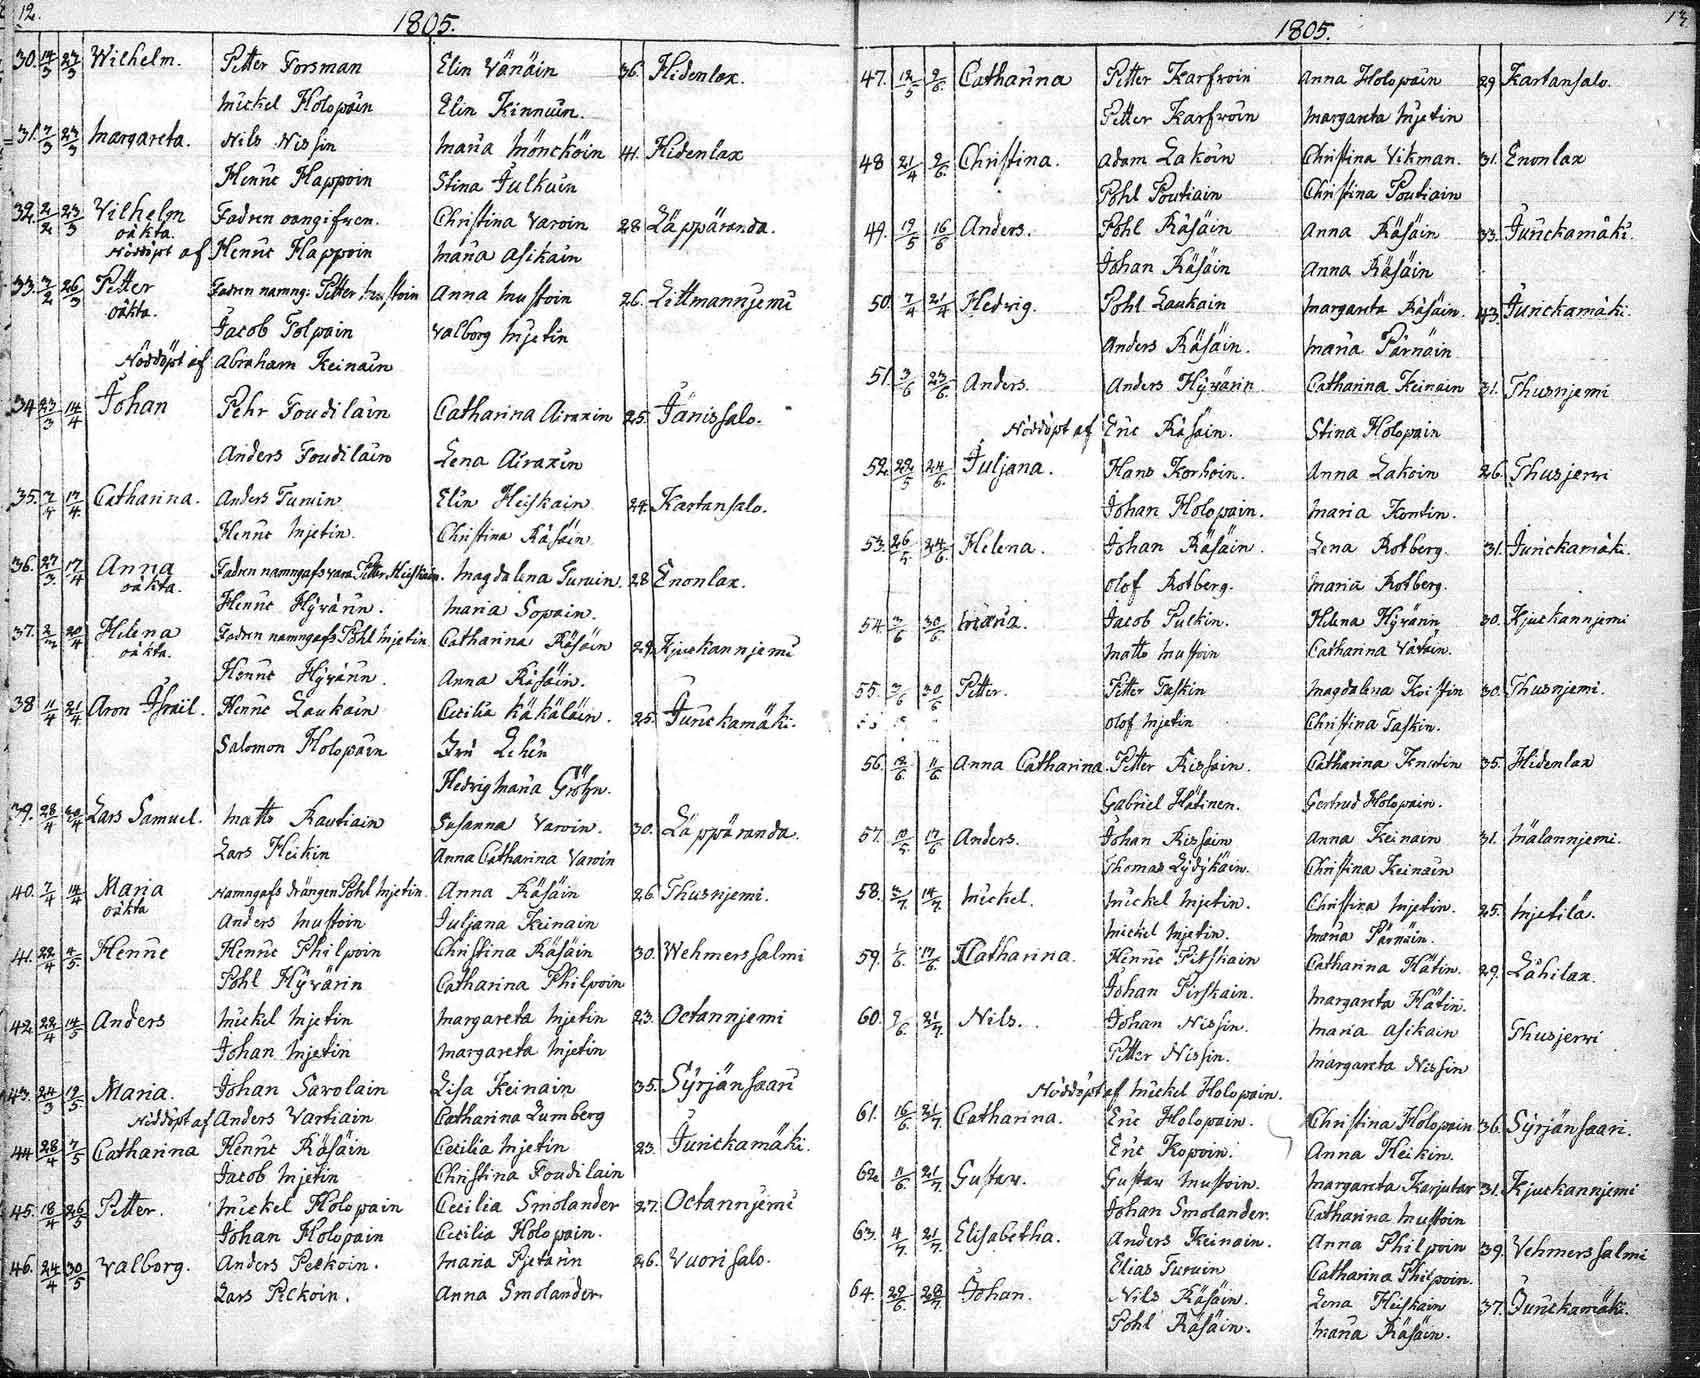 12.
1805.
30. 14/3 23/3 Wilhelm. Petter Forsman Elin Vänäin 36. Hidenlax.
Mickel Holopain Elin Kinnuin.
31. 7/3 23/3 Margareta. Nils Nissin Maria Möncköin 41. Hidenlax
Henric Happoin Stina Julkuin
32. 2/2 23/3 Vilhelm Fadren oangifven. Christina Varoin 28 Läppäranda.
oäkta.
Nöddöpt af Henric Happoin Maria Asikain
33. 3/2 26/3 Petter Fadren namng: Petter Mustoin Anna Mustoin 26. Littmannjemi
oäkta.
Jacob Tolpain Valborg Mjetin
Nöddöpt af Abraham Keinäin
34 23/3 14/4 Johan Pehr Toudilain Catharina Airaxin 25. Jänissalo.
Anders Toudilain Lena Airaxin
35. 7/4 17/4 Catharina. Anders Turuin Elin Heiskain 24. Kartansalo.
Henric Mjetin. Christina Räsäin
36. 27/3 17/4 Anna Fadren namngafs vara Petter Heiskain. Magdalena Turuin. 28 Enonlax.
oäkta.
Henric Hyvärin. Maria Sopain.
37. 20/4 Helena Fadren namngafs Pohl Mjetin Catharina Räsäin 29. Kjuckannjemi
oäkta.
Henric Hyvärin. Anna Räsäin.
38 11/4 21/4 Aron Israil. Henric Laukain Cecilia Käkäläin. 25. Junckamäki.
Salomon Holopain Brit Lehin
Hedvig Maria Gröhn.
39. 28/4 30/4 Lars Samuel. Matts Rautiain Susanna Varoin. 30. Läppäranda.
Lars Heikin Anna Catharina Varoin
40. 7/4 14/4 Maria Namngafs drängen Pohl Mjetin. Anna Räsäin 26. Thusnjemi.
oäkta
Anders Mustoin Juljana Keinain
41. 22/4 4/5 Henric Henric Philpoin Christina Räsäin 30. Wehmerssalmi
Pohl Hyvärin Catharina Philpoin
42. 22/4 14/5 Anders Mickel Mjetin Margareta Mjetin 23. Octannjemi
Johan Mjetin Margareta Mjetin
43. 24/3 12/5 Maria. Johan Savolain Lisa Keinain 35. Syrjänsaari
Nöddöpt af Anders Vartiain Catharina Lumberg
44. 28/4 7/5 Catharina Henric Räsäin Cecilia Mjetin 23. Junckamäki.
Jacob Mjetin Christina Toudilain
45. 18/4 26/5 Petter. Mickel Holopain Cecilia Smolander 27. Octannjemi
Johan Holopain Cecilia Holopain.
46. 24/4 30/5 Valborg. Anders Peckoin. Maria Pjetärin 26. Vuorisalo.
Lars Peckoin. Anna Smolander
13.
1805.
47. 12/5 2/6 Catharina Petter Karfvoin Anna Holopain 29 Kartansalo.
Petter Karfvoin Margareta Mjetin
48 21/4 2/6 Christina. Adam Lakoin Christina Vikman. 31. Enonlax
Pohl Poutiain Christina Poutiain
49. 19/5 16/6 Anders. Pohl Räsäin Anna Räsäin 33. Junckamäki.
Johan Räsäin Anna Räsäin
50. 7/4 21/4 Hedvig. Pohl Laukain Margareta Räsäin. 43. Junckamäki.
Anders Räsäin. Maria Pärnäin
51. 3/6 23/6 Anders. Anders Hyvärin Catharina Keinain 31. Thusnjemi
Nöddöpt af Eric Räsäin. Stina Holopain
52. 22/5 24/6 Juljana. Hans Korhoin. Anna Lakoin 26. Thusjerwi
Johan Holopain. Maria Kontin.
53. 26/5 24/6 Helena. Johan Räsäin. Lena Rotberg. 31. Junckamäki.
Olof Rotberg. Maria Rotberg.
54. 3/6 30/6 Maria. Jacob Pulkin. Helena Hyvärin 30. Kjuckannjemi
Matts Mustoin Catharina Vätäin.
55. 3/6 30/6 Petter. Petter Taskin Magdalena Koistin 30. Thusnjemi.
Olof Mjetin Christina Taskin.
56. 12/6 11/6 Anna Catharina. Petter Rissain. Catharina Knutin 35. Hidenlax
Gabriel Hätinen. Gertrud Holopain.
57. 10/5 17/6 Anders. Johan Rissain Anna Keinain 31. Mälannjemi.
Thomas Lydykäin. Christina Keinain
58. 3/7 14/7 Mickel. Mickel Mjetin. Christina Mjetin. 25. Mjetilä.
Mickel Mjetin. Maria Pärnäin.
59. 1/6 17/6 Catharina. Henric Pitskain Catharina Hätin. 29. Lähilax.
Johan Pirskain. Margareta Hätin.
60. 9/6 21/7 Nils. Johan Nissin. Maria Asikain Thusjerwi
Petter Nissin. Margareta Nissin
Nöddöpt af Mickel Holopain.
61. 16/6 21/7 Catharina. Eric Holopain. Christina Holopain 36. Syrjänsaari.
Eric Kopoin. Anna Heikin.
62. 11/6 21/7 Gustav. Gustav Mustoin. Margareta Karjutar 31. Kjuckannjemi
Johan Smolander. Catharina Mustoin
63. 4/7 21/7 Elisabetha. Anders Keinain. Anna Philpoin 39. Vehmerssalmi
Elias Turuin Catharina Philpoin.
64. 29/6 28/7 Johan. Nils Räsäin. Lena Heiskain 37. Junckamäki.
Pohl Räsäin. Maria Räsäin.